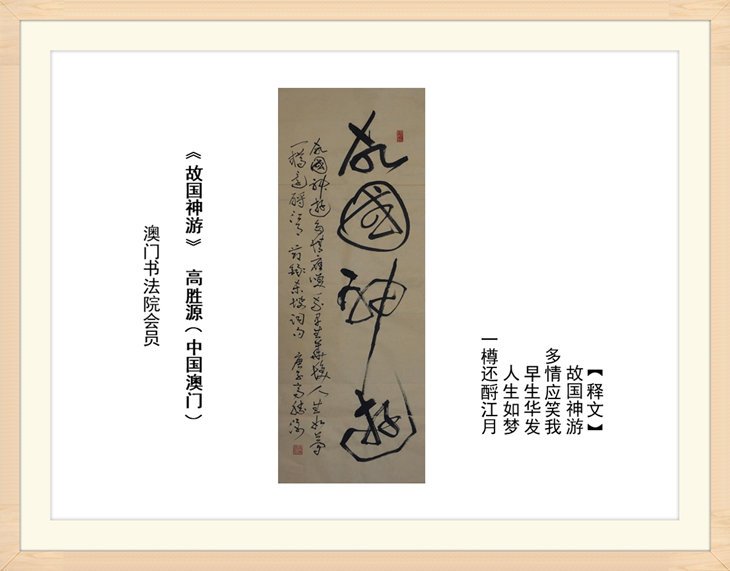 【释文】
故国神游
多情应笑我
早生华发
人生如梦
一樽还酹江月
故國神遊
故國神遊多情應笑我早生華髮人生如夢
一樽還酹江月 東坡詞句 庚子高勝源
《故国神游》 高胜源(中国澳门)
澳门书法院会员